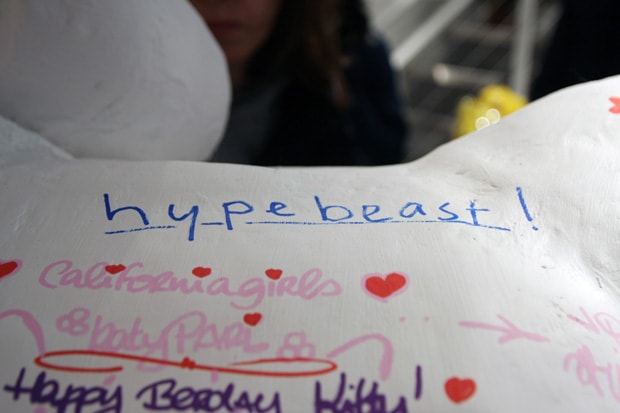 hypebeast!
California girls
katy PARL
Happy Berday Kitty!